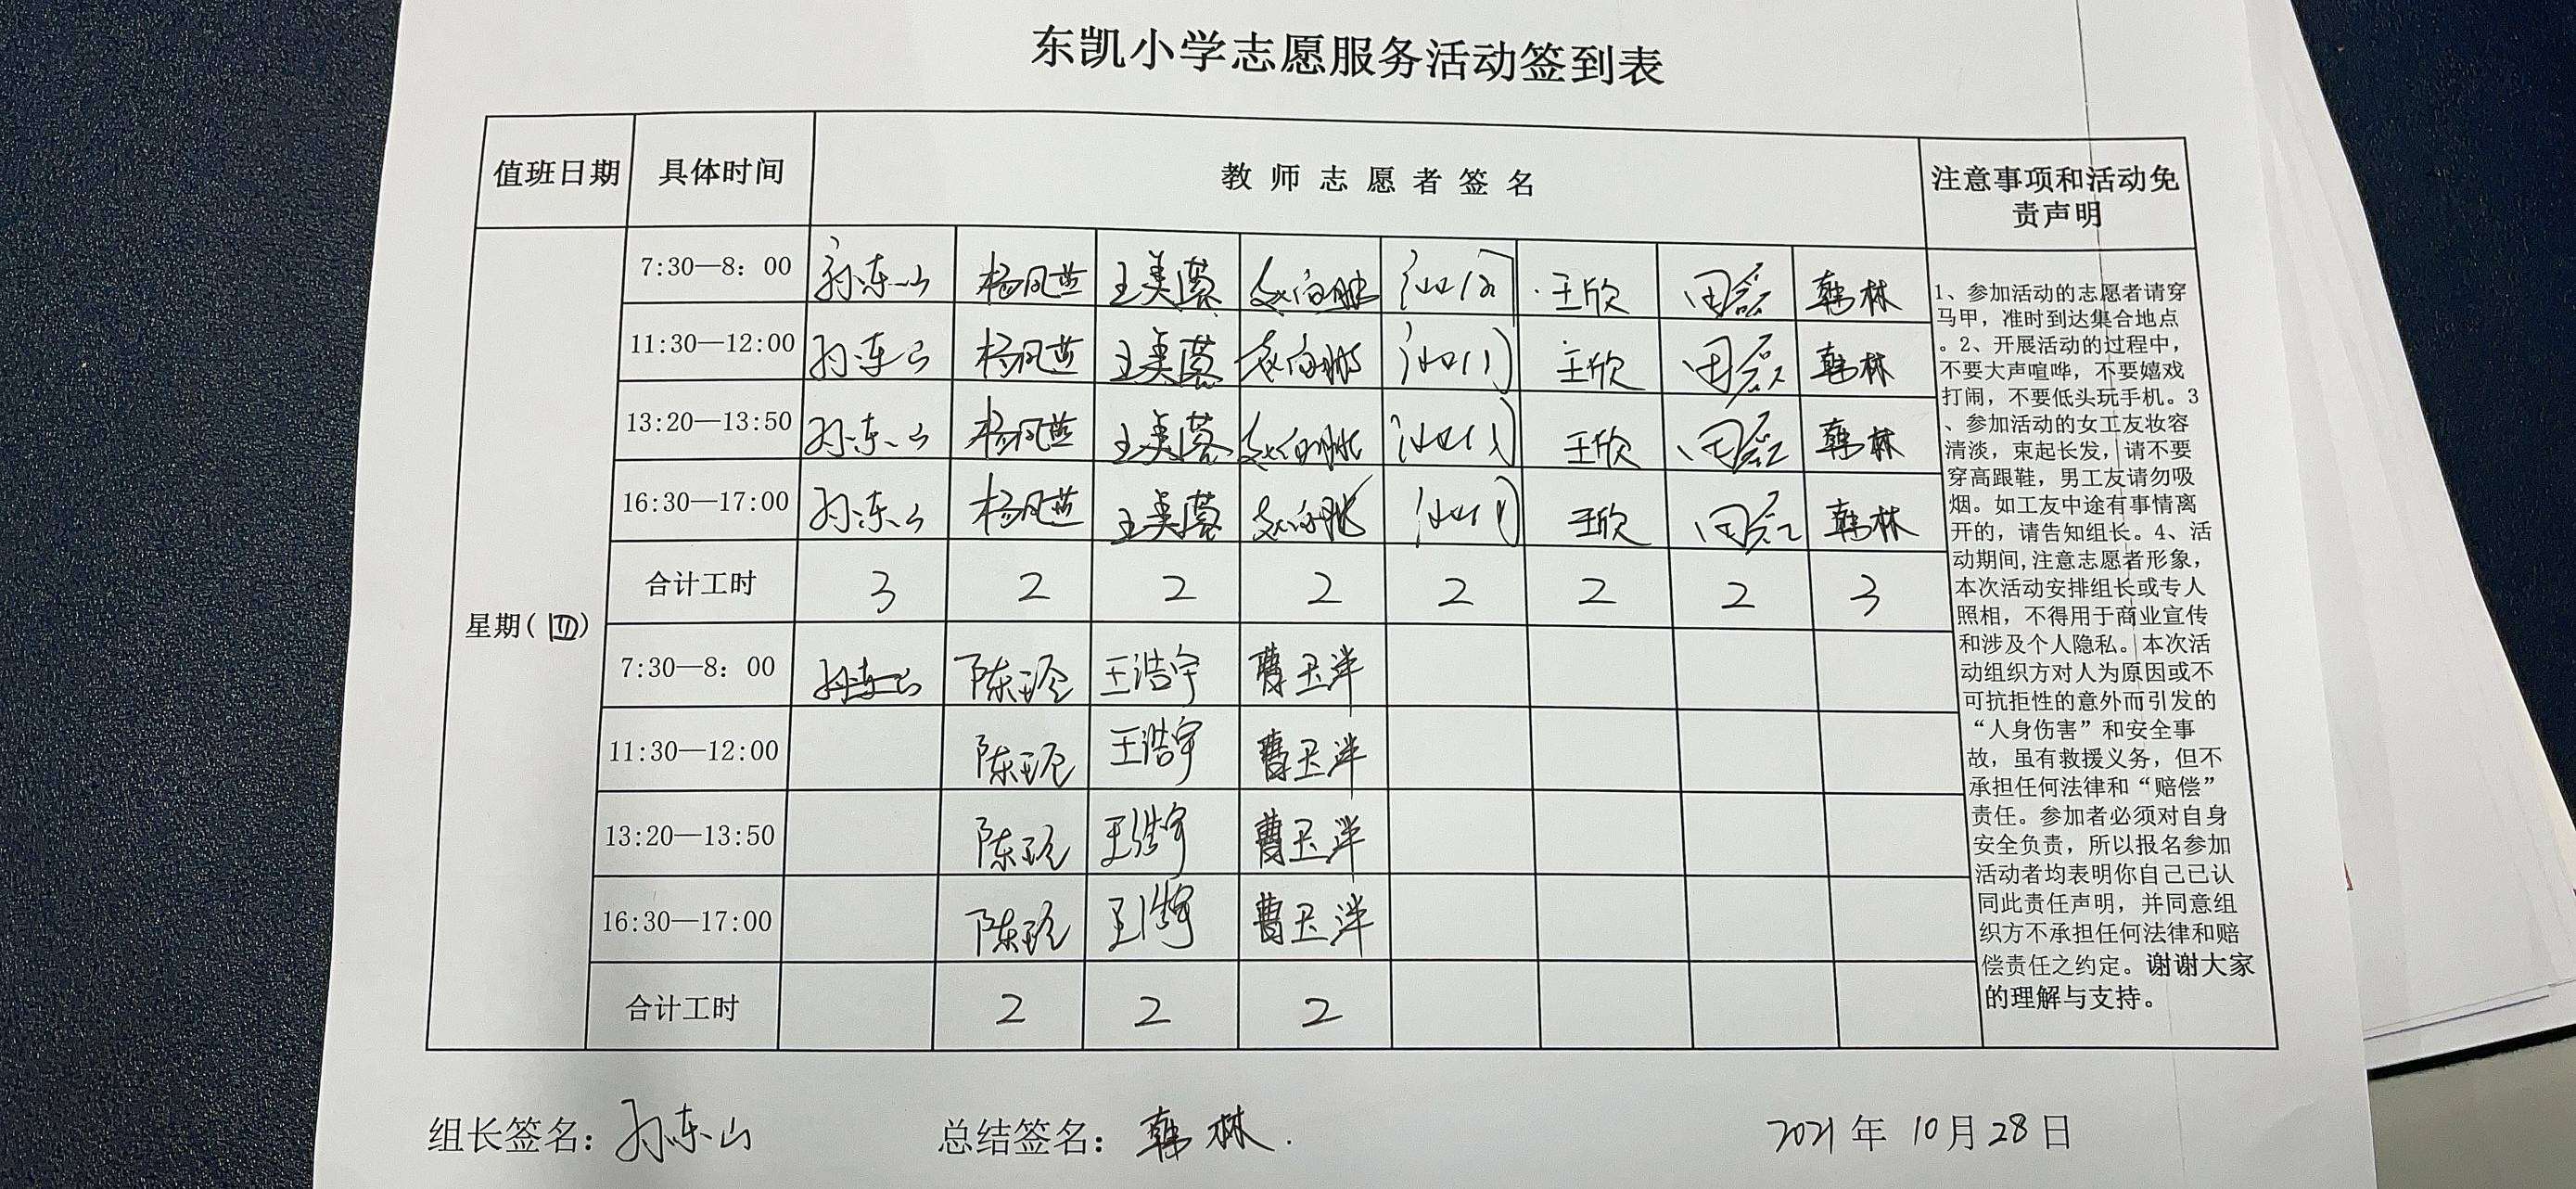 东凯小学志愿服务活动签到表
值班日期 具体时间 教师志愿者签名 注意事项和活动免
责声明
7:30—8：00 孙东山 杨凤燕 王美蓉 王欣 田磊 韩林
11:30—12:00 孙东山 杨凤燕 王美蓉 王欣 田磊 韩林
13:20—13:50 孙东山 杨凤燕 王美蓉 王欣 田磊 韩林
16:30—17:00 孙东山 杨凤燕 王美蓉 王欣 田磊 韩林
合计工时 3 2 2 2 2 2 2 3
星期(四)
7:30—8：00 陈玲 王浩宇 曹玉洋
11:30—12:00 陈玲 王浩宇 曹玉洋
13:20—13:50 陈玲 王浩宇 曹玉洋
16:30—17:00 陈玲 王浩宇 曹玉洋
合计工时 2 2 2
1、参加活动的志愿者请穿
马甲，准时到达集合地点
。2、开展活动的过程中，
不要大声喧哗，不要嬉戏
打闹，不要低头玩手机。3
、参加活动的女工友妆容
清淡，束起长发，请不要
穿高跟鞋，男工友请勿吸
烟。如工友中途有事情离
开的，请告知组长。4、活
动期间,注意志愿者形象，
本次活动安排组长或专人
照相，不得用于商业宣传
和涉及个人隐私。本次活
动组织方对人为原因或不
可抗拒性的意外而引发的
“人身伤害”和安全事
故，虽有救援义务，但不
承担任何法律和“赔偿”
责任。参加者必须对自身
安全负责，所以报名参加
活动者均表明你自己已认
同此责任声明，并同意组
织方不承担任何法律和赔
偿责任之约定。谢谢大家
的理解与支持。
组长签名：孙东山 总结签名：韩林. 2021年 10月28日